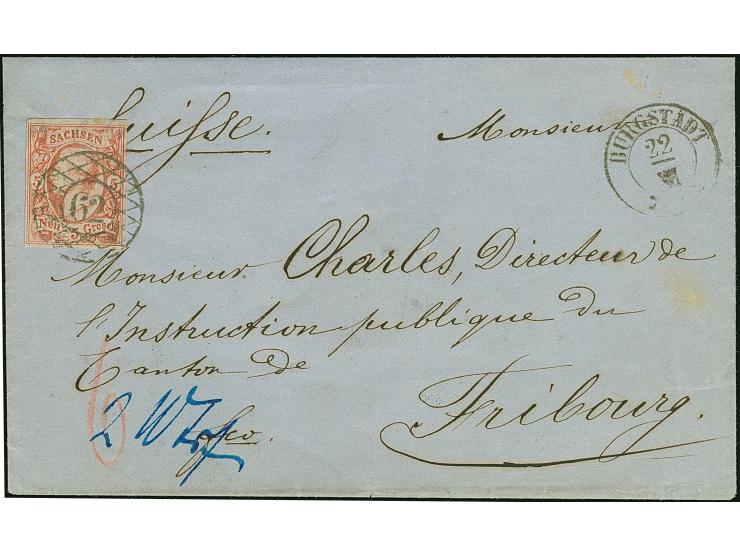 Suisse.
Monsieur
BURGSTÄDT
22
SACHSEN
5 5
62
Neu 5 Grosch
Monsieur Charles, Directeur de
l'Instruction publique du
Canton de
Fribourg.
fco.
2